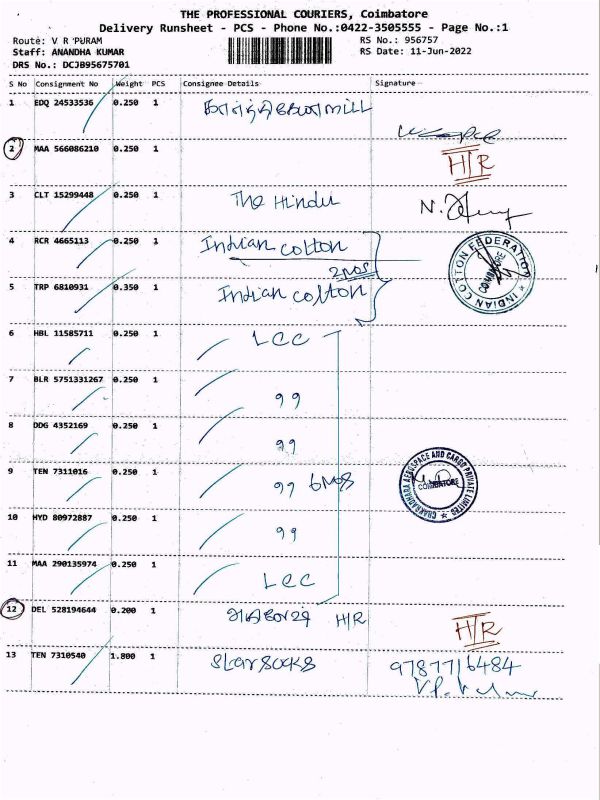 THE PROFESSIONAL COURIERS, Coimbatore
Delivery Runsheet - PCS - Phone No.:0422-3505555 - Page No.:1
Route: V R PURAM RS No.: 956757
Staff: ANANDHA KUMAR RS Date: 11-Jun-2022
DRS No.: DCJB95675701
S No Consignment No Weight PCS Consignee Details Signature
1 EDQ 24533536 0.250 1
2 MAA 566086210 0.250 1 H/R
3 CLT 15299448 0.250 1 The Hindu N.
4 RCR 4665113 0.250 1 Indian cotton
2NOS
5 TRP 6810931 0.350 1 Indian cotton
INDIAN COTTON FEDERATION
COIMBATORE
6 HBL 11585711 0.250 1 LCC
7 BLR 5751331267 0.250 1 99
8 DDG 4352169 0.250 1 99
9 TEN 7311016 0.250 1 99 6NOS
CHAKRADHARA AEROSPACE AND CARGO PRIVATE LIMITED
COIMBATORE
10 HYD 80972887 0.250 1 99
11 MAA 290135974 0.250 1 LCC
12 DEL 528194644 0.200 1 H/R H/R
13 TEN 7310540 1.800 1 9787716484